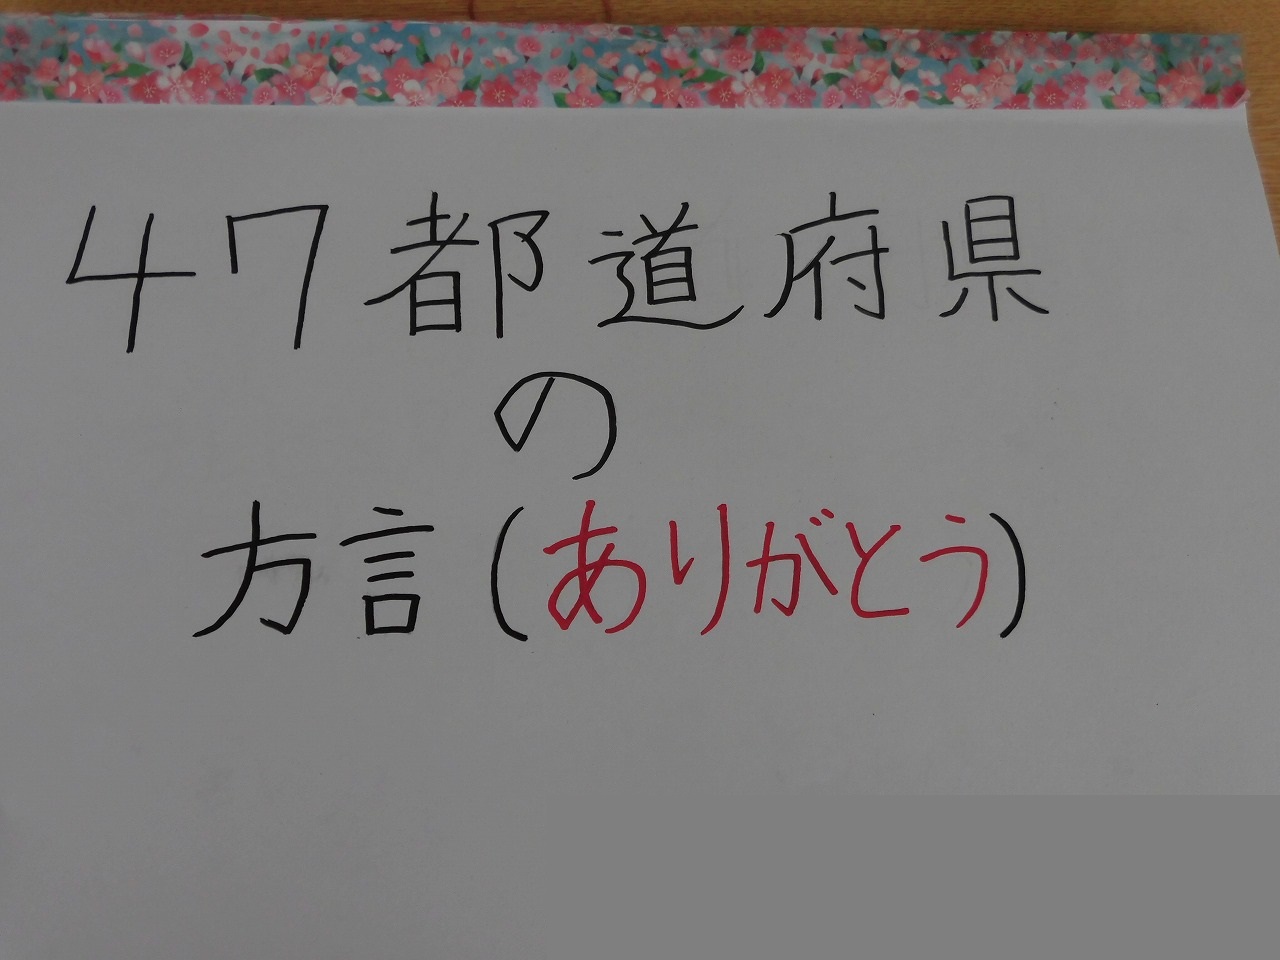 47都道府県
の
方言(ありがとう)